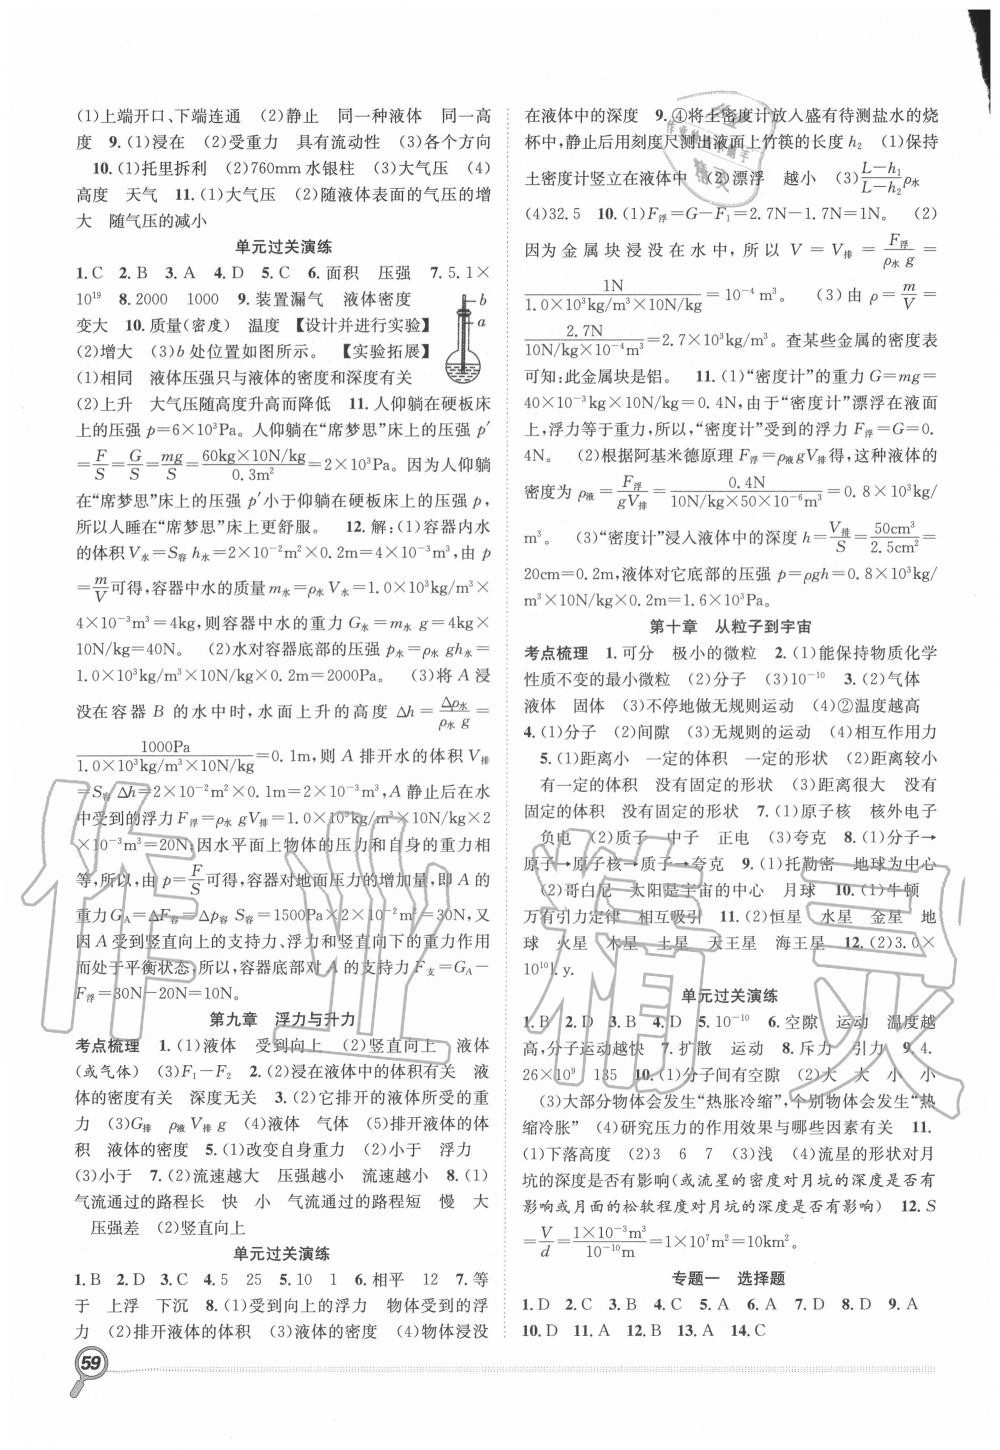 (1)上端开口、下端连通 (2)静止 同一种液体 同一高
度 9. (1)浸在 (2)受重力 具有流动性 (3)各个方向
10. (1)托里拆利 (2)760mm水银柱 (3)大气压 (4)
高度 天气 11. (1)大气压 (2)随液体表面的气压的增
大 随气压的减小
单元过关演练
1. C 2. B 3. A 4. D 5. C 6. 面积 压强 7. 5.1×
10¹⁹ 8. 2000 1000 9. 装置漏气 液体密度
变大 10. 质量(密度) 温度 【设计并进行实验】
(2)增大 (3)b处位置如图所示。 【实验拓展】
(1)相同 液体压强只与液体的密度和深度有关
b
a
(2)上升 大气压随高度升高而降低 11. 人仰躺在硬板床
上的压强 p=6×10³Pa。人仰躺在“席梦思”床上的压强 p′
=F/S=G/S=mg/S=60kg×10N/kg/0.3m²=2×10³Pa。因为人仰躺
在“席梦思”床上的压强 p′小于仰躺在硬板床上的压强 p,
所以人睡在“席梦思”床上更舒服。 12. 解:(1)容器内水
的体积V水=S容 h水=2×10⁻²m²×0.2m=4×10⁻³m³,由 p
=m/V可得,容器中水的质量m水=ρ水V水=1.0×10³kg/m³×
4×10⁻³m³=4kg,则容器中水的重力G水=m水 g=4kg×
10N/kg=40N。 (2)水对容器底部的压强p水=ρ水 gh水=
1.0×10³kg/m³×10N/kg×0.2m=2000Pa。 (3)将 A 浸
没在容器 B 的水中时,水面上升的高度 Δh=Δp水/ρ水 g=
1000Pa/1.0×10³kg/m³×10N/kg=0.1m,则 A 排开水的体积V排
=S容 Δh=2×10⁻²m²×0.1m=2×10⁻³m³,A静止后在水
中受到的浮力F浮=ρ水 gV排=1.0×10³kg/m³×10N/kg×2
×10⁻³m³=20N;因水平面上物体的压力和自身的重力相
等,所以,由 p=F/S可得,容器对地面压力的增加量,即 A 的
重力G_A=ΔF容=Δp容 S容=1500Pa×2×10⁻²m²=30N,又
因 A 受到竖直向上的支持力、浮力和竖直向下的重力作用
而处于平衡状态,所以,容器底部对 A 的支持力F支=G_A-
F浮=30N-20N=10N。
第九章 浮力与升力
考点梳理 1. (1)液体 受到向上 (2)竖直向上 液体
(或气体) (3)F₁-F₂ 2. (1)浸在液体中的体积有关 液
体的密度有关 深度无关 3. (2)它排开的液体所受的重
力 (3)G排 ρ液 V排 g (4)液体 气体 (5)排开液体的体
积 液体的密度 5. (1)改变自身重力 (2)小于 浮力
(3)小于 7. (2)流速越大 压强越小 流速越小 8. (1)
气流通过的路程长 快 小 气流通过的路程短 慢 大
压强差 (2)竖直向上
单元过关演练
1. B 2. D 3. C 4. 5 25 5. 10 1 6. 相平 12 7. 等
于 上浮 下沉 8. (1)受到向上的浮力 物体受到的浮
力 (2)排开液体的体积 (3)液体的密度 (4)物体浸没
在液体中的深度 9. ④将土密度计放入盛有待测盐水的烧
杯中,静止后用刻度尺测出液面上竹筷的长度 h₂ (1)保持
土密度计竖立在液体中 (2)漂浮 越小 (3)L-h₁/L-h₂ρ水
(4)32.5 10. (1)F浮=G-F₁=2.7N-1.7N=1N。 (2)
因为金属块浸没在水中,所以 V=V排=F浮/ρ水 g=
1N/1.0×10³kg/m³×10N/kg=10⁻⁴m³。 (3)由ρ=m/V=
2.7N/10N/kg×10⁻⁴m³=2.7×10³kg/m³。查某些金属的密度表
可知:此金属块是铝。 11. (1)“密度计”的重力G=mg=
40×10⁻³kg×10N/kg=0.4N,由于“密度计”漂浮在液面
上,浮力等于重力,所以,“密度计”受到的浮力F浮=G=0.
4N。 (2)根据阿基米德原理F浮=ρ液gV排得,这种液体的
密度为ρ液=F浮/gV排=0.4N/10N/kg×50×10⁻⁶m³=0.8×10³kg/
m³。 (3)“密度计”浸入液体中的深度h=V排/S=50cm³/2.5cm²=
20cm=0.2m,液体对它底部的压强p=ρgh=0.8×10³kg/
m³×10N/kg×0.2m=1.6×10³Pa。
第十章 从粒子到宇宙
考点梳理 1. 可分 极小的微粒 2. (1)能保持物质化学
性质不变的最小微粒 (2)分子 (3)10⁻¹⁰ 3. (2)气体
液体 固体 (3)不停地做无规则运动 (4)②温度越高
4. (1)分子 (2)间隙 (3)无规则的运动 (4)相互作用力
5. (1)距离小 一定的体积 一定的形状 (2)距离较小
有一定的体积 没有固定的形状 (3)距离很大 没有
固定的体积 没有固定的形状 7. (1)原子核 核外电子
负电 (2)质子 中子 正电 (3)夸克 8. (1)分子→
原子→原子核→质子→夸克 9. (1)托勒密 地球为中心
(2)哥白尼 太阳是宇宙的中心 月球 10. (1)牛顿
万有引力定律 相互吸引 11. (2)恒星 水星 金星 地
球 火星 木星 土星 天王星 海王星 12. (2)3.0×
10¹⁰l.y.
单元过关演练
1. B 2. D 3. D 4. D 5. 10⁻¹⁰ 6. 空隙 运动 温度越
高,分子运动越快 7. 扩散 运动 8. 斥力 引力 9. 4.
26×10⁹ 135 10. (1)分子间有空隙 (2)大 大 小 小
(3)大部分物体会发生“热胀冷缩”,个别物体会发生“热
缩冷胀” (4)研究压力的作用效果与哪些因素有关 11.
(1)下落高度 (2)3 6 7 (3)浅 (4)流星的形状对月
坑的深度是否有影响(或流星的密度对月坑的深度是否有
影响或月面的松软程度对月坑的深度是否有影响) 12. S
=V/d=1×10⁻³m³/10⁻¹⁰m=1×10⁷m²=10km²。
专题一 选择题
1. D 2. C 3. C 4. C 5. A 6. A 7. D 8. D 9. A
10. D 11. A 12. B 13. A 14. C
59
作业精灵